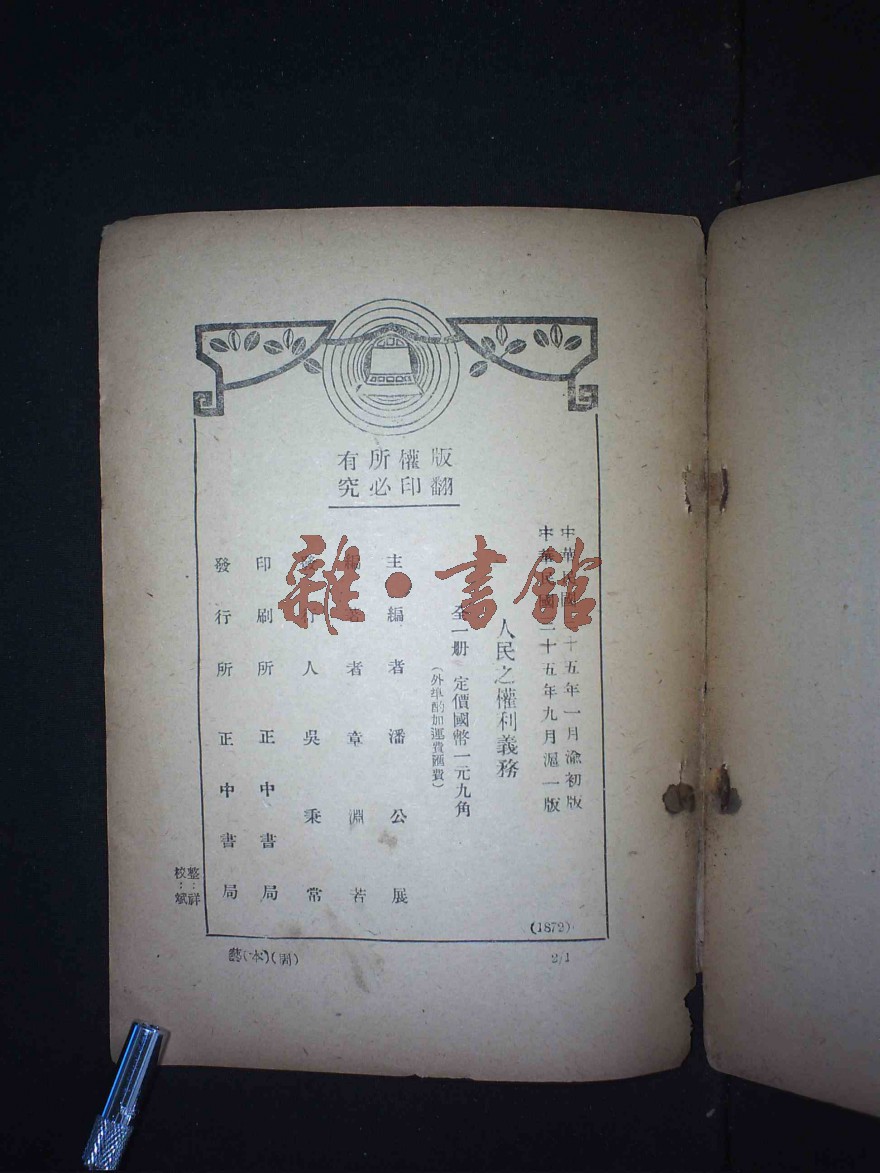 版權所有
翻印必究
中華民國三十五年一月渝初版
中華民國三十五年九月滬一版
人民之權利義務
全一册 定價國幣一元九角
(外埠酌加運費匯費)
主編者 潘公展
編著者 章淵若
發行人 吳秉常
印刷所 正中書局
發行所 正中書局
(1872)
整:祥
校:斌
2/1
雜·書館